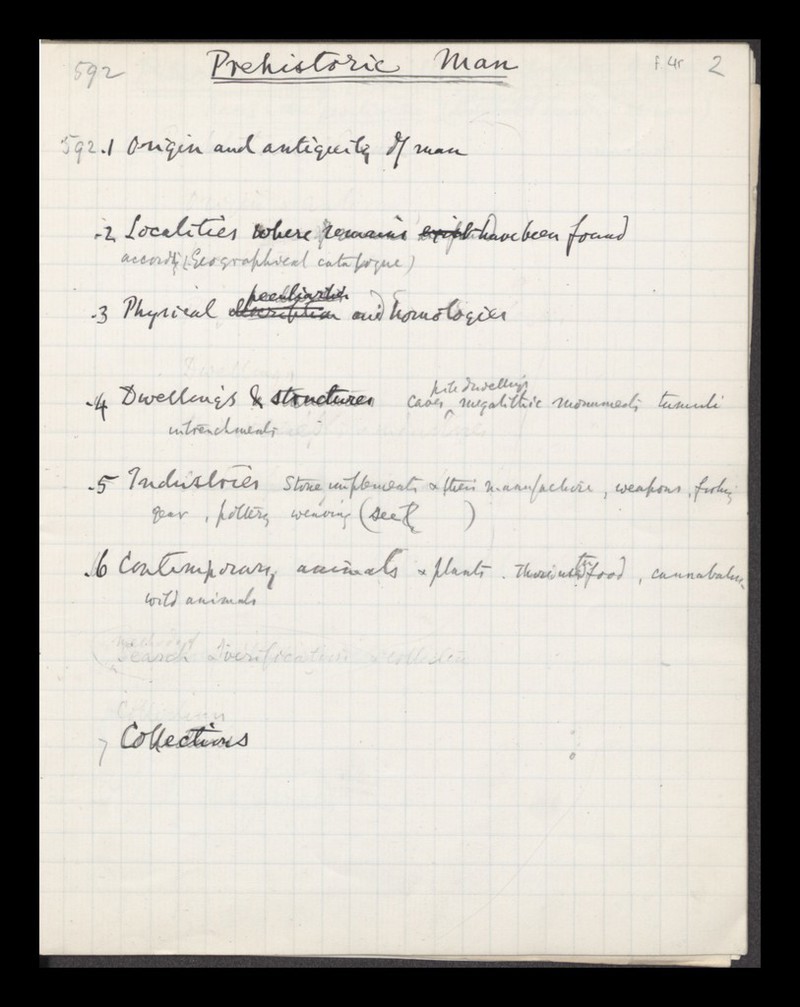 592 Prehistoric Man f 4r 2
592.1 Origin and antiquity of man
.2 Localities where remains have been found
(Geographical catalogue)
peculiarities
.3 Physical description and homologies
pit dwellings
.4 Dwellings & structures caves megalithic monuments tumuli
intrenchments
.5 Industries Stone implements & their manufacture, weapons, fishing
gear, pottery weaving (see )
.6 Contemporary animals & plants. food, cannabalism
wild animals
Search & verification & collection
Collections
7 Collections